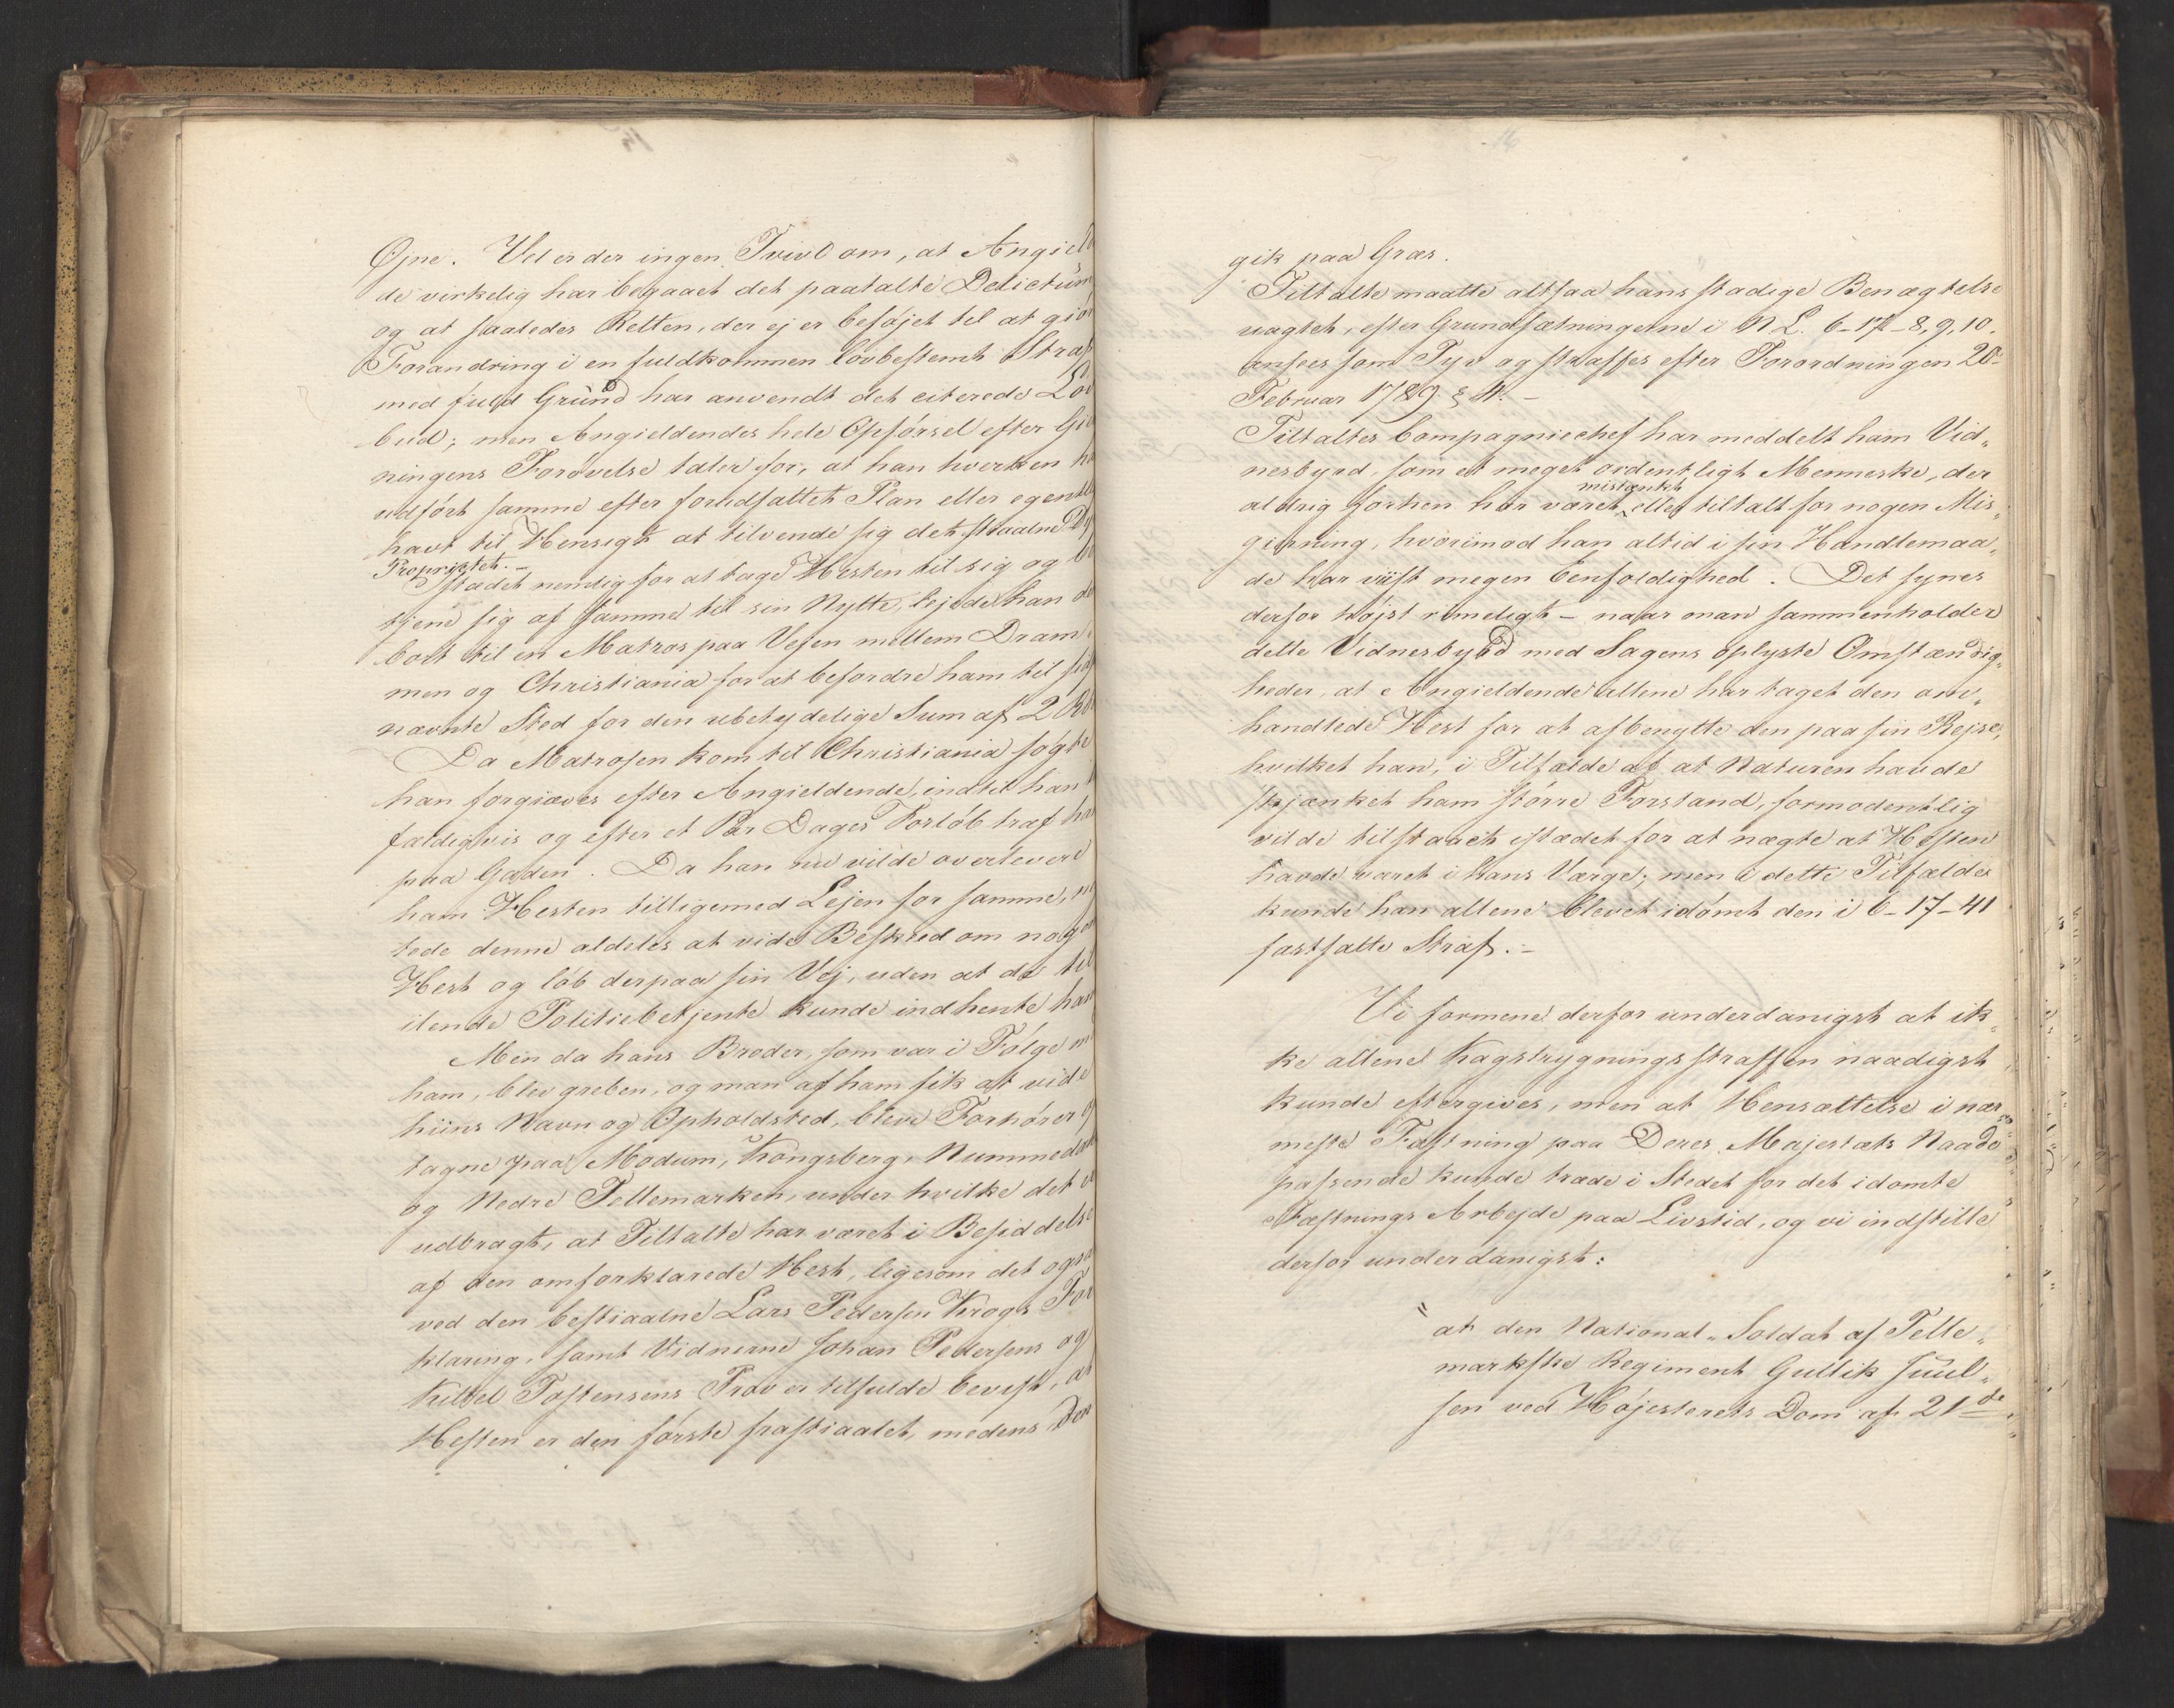 Øjne. Vel er der ingen Tvivl om, at Angiel
de virkelig har begaaet det paatalte Delictum
og at saaledes Retten, der ej er beføjet til at giør
Forandring i en fuldkommen lovbestemt Straf
med fuld Grund har anvendt det citerede Lov
bud; men Angieldendes hele Opførsel efter Gier
ningens Forøvelse taler for, at han hverken ha
udført samme efter forudsattet Plan eller egentli
havt til Hensigt at tilvende sig det stiaalne Dy
Proprietet. –
Istædet nemlig for at tage Hesten til sig og be
tjene sig af samme til sin Nytte, lejede han de
bort til en Matros paa Vejen mellem Dram
men og Christiania for at befordre ham til sid
nævnte Sted for den ubetydelige Sum af 2 Rd
Da Matrosen kom til Christiania søgte
han forgiæves efter Angieldende, indtil han
fældigvis og efter et Par Dages Forløb traf ham
paa Gaden. Da han nu vilde overlevere
ham Hesten tilligemed Lejen for samme,
tede denne aldeles at vide Beskeed om nogen
Hest og løb derpaa sin Vej, uden at de til
ilende Politiebetjente kunde indhente ham
Men da hans Broder, som var i Følge m
ham, blev greben, og man af ham fik at vide
hiins Navn og Opholdsted, bleve Forhører
tagne paa Modum, Kongsberg, Nummedal
og Nedre Tellemarken, under hvilke det er
udbragt, at Tiltalte har været i Besiddelse
af den omforklarede Hest, ligesom det ogsaa
ved den bestiaalne Lars Pedersen Krogs For
klaring, samt Vidnerne Johan Pedersens og
Kittel Tostensens Prov er tilfulde bevist, at
Hesten er den første frastiaalet, medens den
gik paa Græs.
Tiltalte maatte altsaa hans stadige Benægtelse
uagtet, efter Grundsætningerne i N L. 6–17–8, 9, 10.
ansees som Tyv og straffes efter Forordningen 20
Februar 1789 § 4. –
Tiltaltes Compagniechef har meddelt ham Vid„
nesbyrd, som et meget ordentligt Menneske, der
aldrig forhen har været mistænkt eller tiltalt for nogen Mis„
gierning, hvorimod han altid i sin Handlemaa„
de har viist megen Eenfoldighed. Det synes
derfor højst rimeligt – naar man sammenholder
dette Vidnesbyrd med Sagens oplyste Omstændig„
heder, at Angieldende allene har taget den om„
handlede Hest for at afbenytte den paa sin Rejse,
hvilket han, i Tilfælde af at Naturen havde
skjænket ham større Forstand, formodentlig
vilde tilstaaet istædet for at nægte at Hesten
havde været i hans Værge; men i dette Tilfælde
kunde han allene blevet idømt den i 6–17–41
fastsatte Straf. –
Vi formene derfor underdanigst at ik„
ke allene Kagstrygningsstraffen naadigst
kunde eftergives, men at Hensættelse i nær
meste Fæstning paa Deres Majestæts Naade
passende kunde træde i Stedet for det idømte
Fæstnings Arbejde paa Livstid, og vi indstille
derfor underdanigst:
„at den National„Soldat af Telle„
markske Regiment Gullik Juul„
sen ved Højesterets Dom af 21de